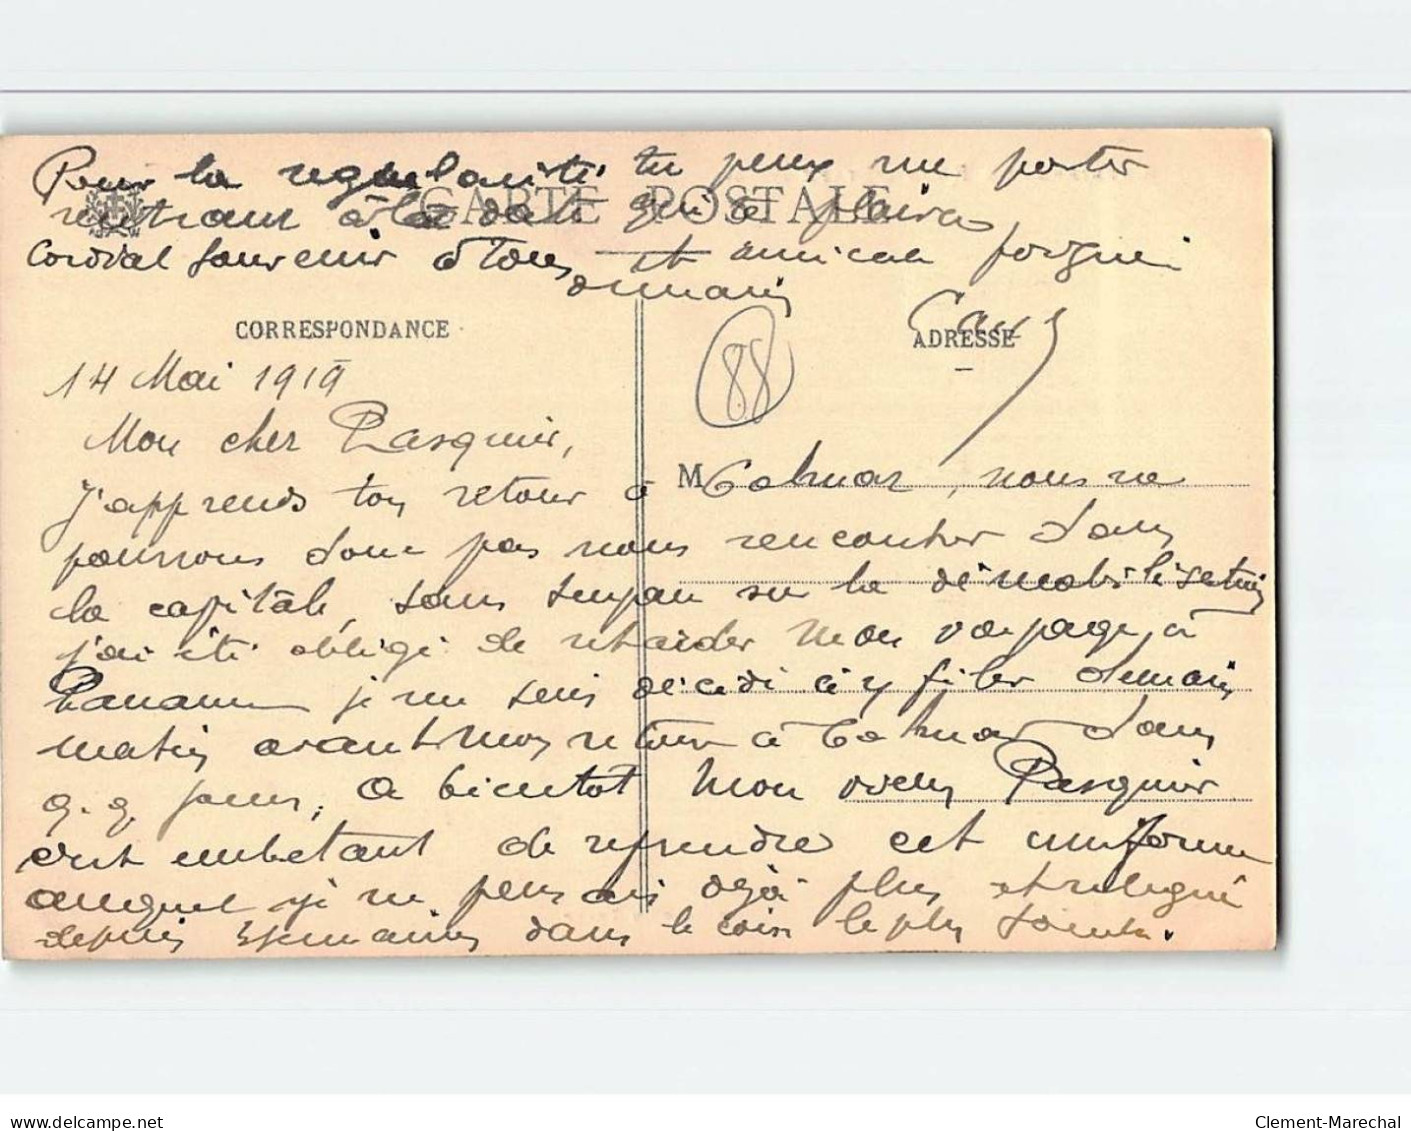 Pour la regularité tu peux me porter
CARTE POSTALE
rentrant à la date qui te plaira
Cordial souvenir à tous et amicale poignée
de main
CORRESPONDANCE
ADRESSE
88
14 Mai 1919
Mon cher Pasquier,
J'apprends ton retour à M Colmar, nous ne
pourrons donc pas nous rencontrer dans
la capitale, sans surseoir sur la démobilisation
j'ai été obligé de retarder mon voyage à
Paname je me suis décidé à y filer demain
matin avant mon retour à Colmar dans
q.q. jours, A bientôt mon vieux Pasquier
c'est embêtant de reprendre cet uniforme
auquel je ne pensais déjà plus et relégué
depuis 3 semaines dans le coin le plus
www.delcampe.net
Clement-Marechal